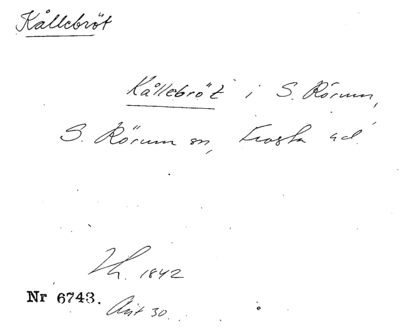 Kållebröt
Kållebröt i S. Rörum,
S. Rörum sn, Frosta hd.
Th. 1842
Nr 6743.
Avt 30